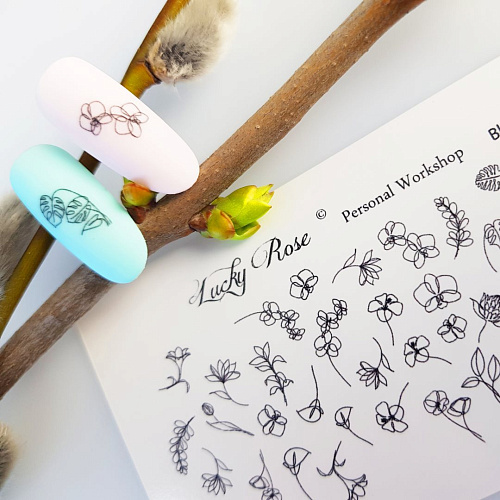 Lucky Rose
© Personal Workshop